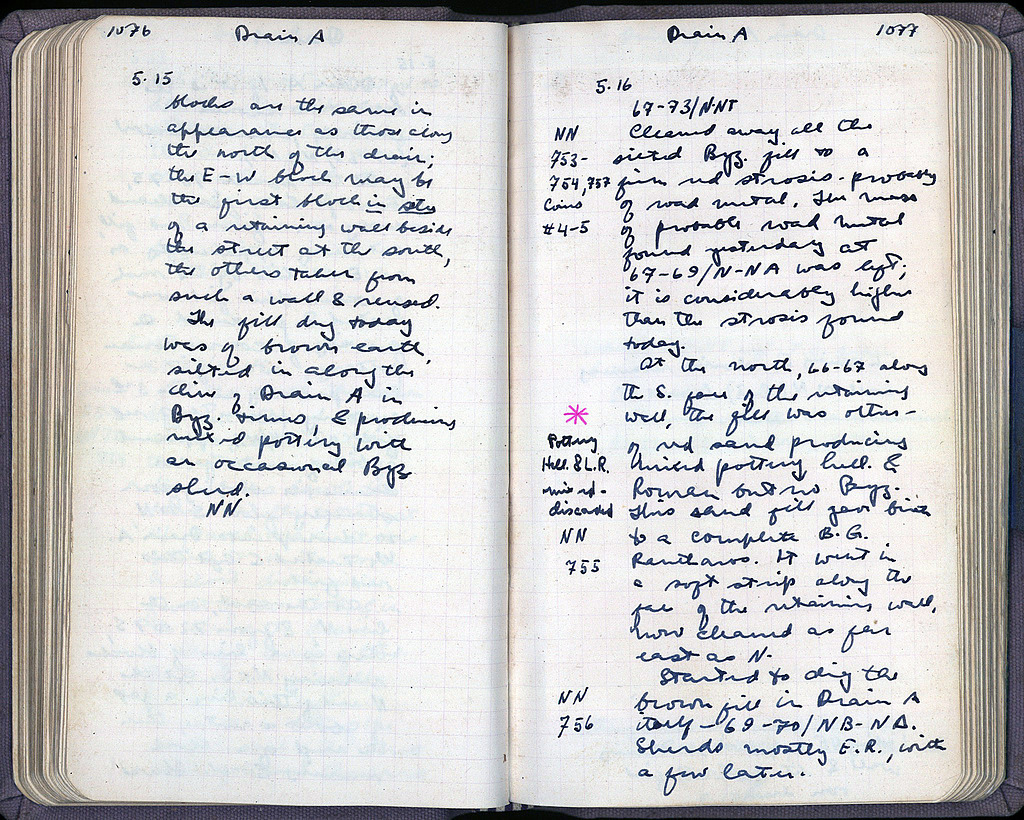 1076
Drain A
5.15
blocks are the same in
appearance as those along
the north of the drain;
the E-W block may be
the first block in situ
of a retaining wall beside
the street at the south,
the others taken from
such a wall & reused.
The fill dug today
was of brown earth,
silted in along the
line of Drain A in
Byz. times, & producing
mixed pottery with
an occasional Byz
sherd.
NN
Drain A
1077
5.16
67-73/N-NT
NN
753-
754,757
Coins
#4-5
Cleaned away all the
silted Byz. fill to a
firm red strosis - probably
of road metal. The mass
of probable road metal
found yesterday at
67-69/N-NA was left;
it is considerably higher
than the strosis found
today.
At the north, 66-67 along
the S. face of the retaining
wall, the fill was other -
Pottery
Hell. & L.R.
mixed -
discarded
NN
755
of red sand producing
mixed pottery hell. &
Roman but no Byz.
This sand fill gave birth
to a complete B.G.
Kantharos. It went in
a soft strip along the
face of the retaining wall,
now cleaned as far
east as N.
Started to dig the
NN
756
brown fill in Drain A
itself - 69-70/NB-NA.
Sherds mostly E.R., with
a few later.